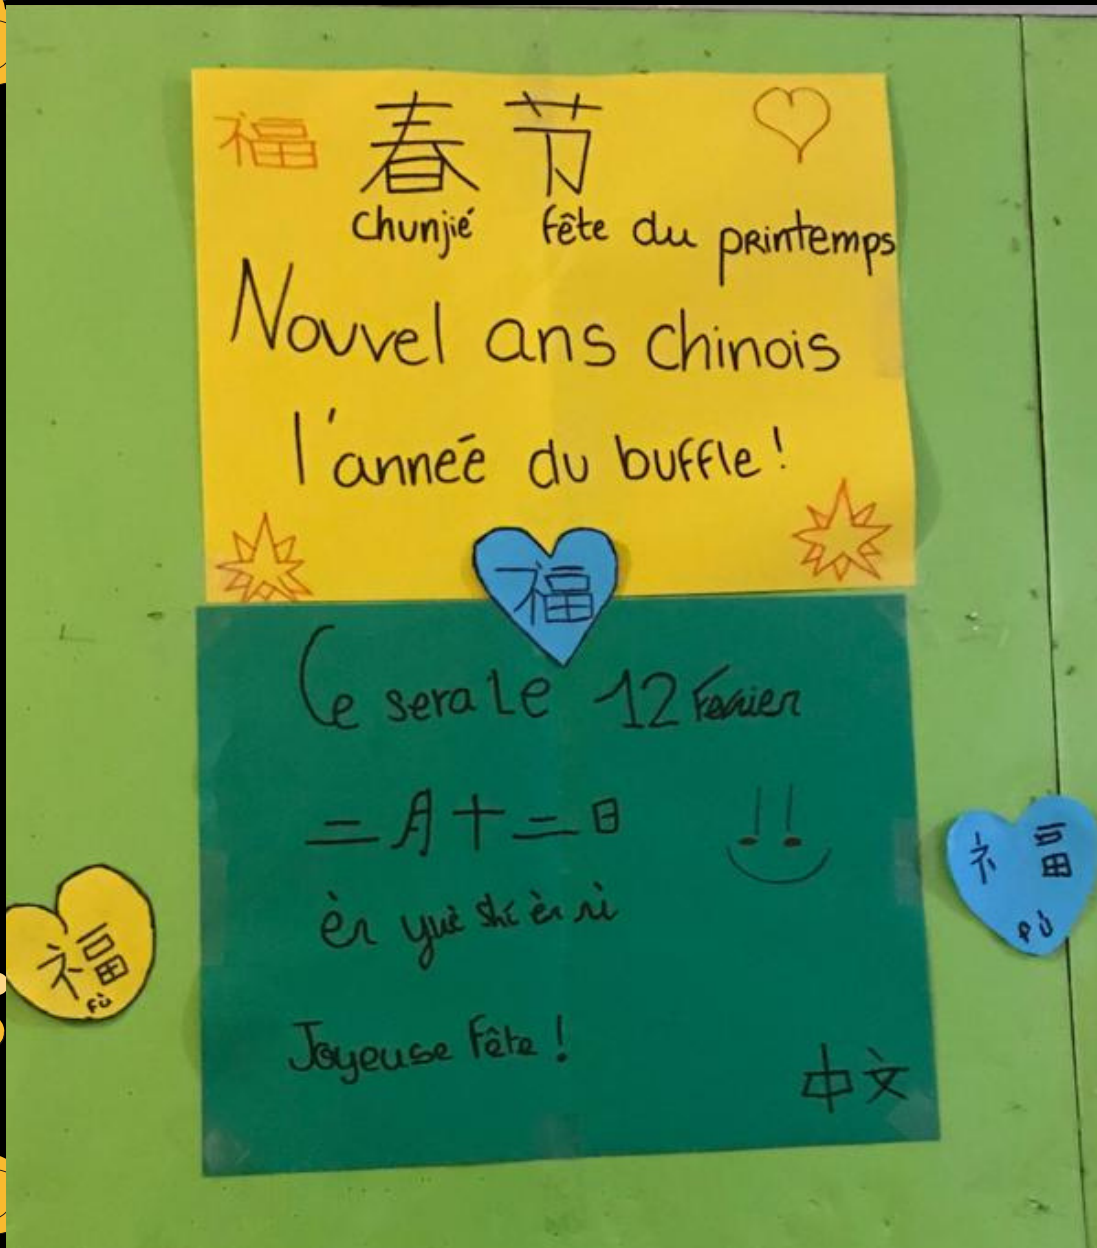 福 春节
chunjié fête du printemps
Nouvel ans chinois
l'année du buffle!
福
Ce sera Le 12 Fevrier
二月十二日
èr yuè shí èr rì
Joyeuse Fête !
中文
福
fù
福
fú